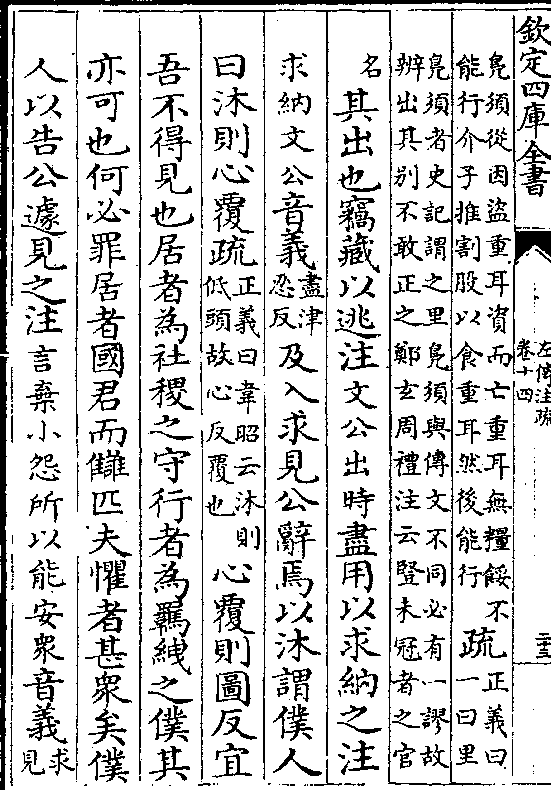 欽定四庫全書
左傳注疏
卷十四
二十三
鳬須從因盜重耳資而亡重耳無糧餒不
能行介子推割股以食重耳然後能行
疏
正義曰
一曰里
鳬須者史記謂之里鳬須與傳文不同必有一謬故
辨出其别不敢正之鄭玄周禮注云豎未冠者之官
名
其出也竊藏以逃注文公出時盡用以求納之注
求納文公音義
盡津
忍反
及入求見公辭焉以沐謂僕人
曰沐則心覆疏
正義曰韋昭云沐則
低頭故心反覆也
心覆則圖反宜
吾不得見也居者為社稷之守行者為羈絏之僕其
亦可也何必罪居者國君而讎匹夫懼者甚衆矣僕
人以告公遽見之注言棄小怨所以能安衆音義
求
見